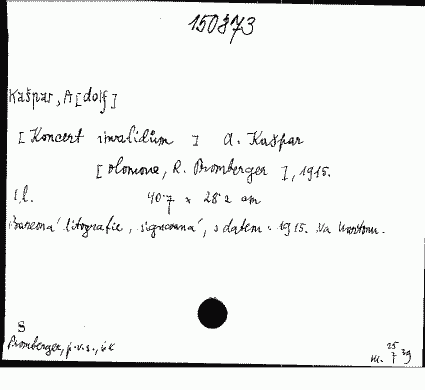 150873
Kašpar, A[dolf]
[Koncert invalidům] A. Kašpar
[Olomouc, R. Promberger], 1915.
1 l. 40.7 x 28.2 cm
Barevná litografie, signovaná, s datem 1915. Na kartonu.
S
Promberger,
m. 7